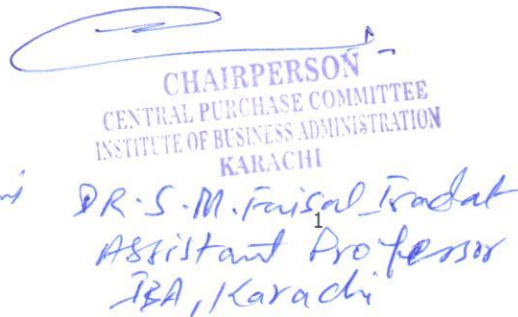 CHAIRPERSON
CENTRAL PURCHASE COMMITTEE
INSTITUTE OF BUSINESS ADMINISTRATION
KARACHI
DR. S. M. Faisal Iradat
1
Assistant Professor
IBA, Karachi